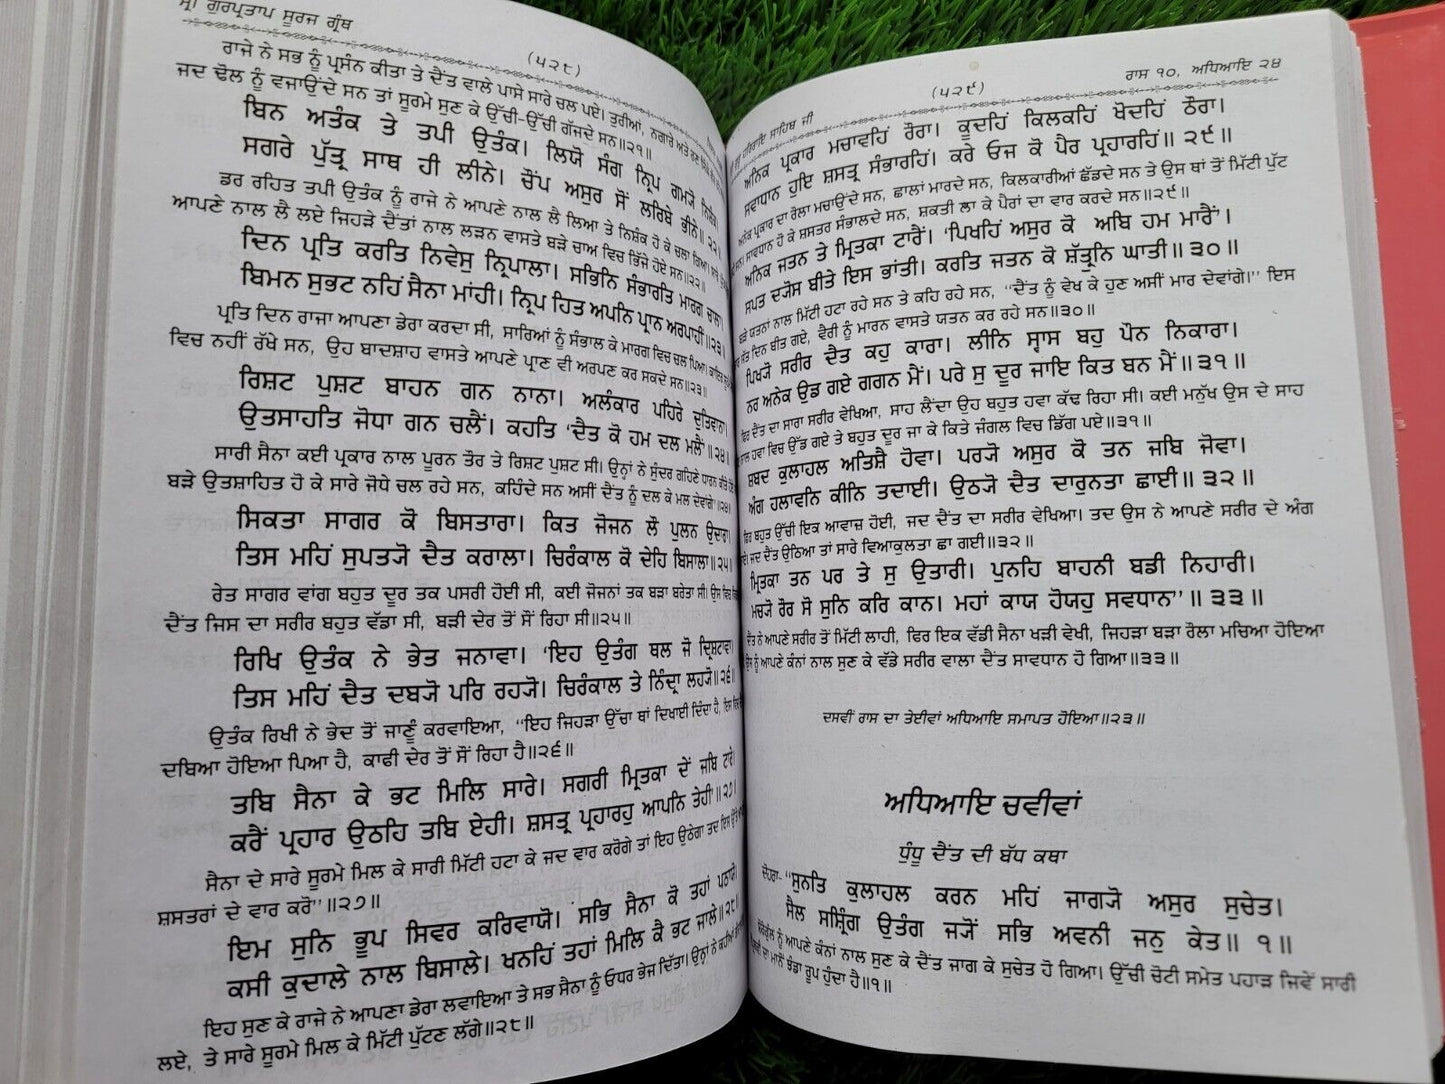 ਸ੍ਰੀ ਗੁਰਪ੍ਰਤਾਪ ਸੂਰਜ ਗ੍ਰੰਥ
(੫੨੮)
ਰਾਜੇ ਨੇ ਸਭ ਨੂੰ ਪ੍ਰਸੰਨ ਕੀਤਾ ਤੇ ਦੈਂਤ ਵਾਲੇ ਪਾਸੇ ਸਾਰੇ ਚਲ ਪਏ। ਤੁਰੀਆਂ, ਨਗਾਰੇ ਅਤੇ
ਜਦ ਢੋਲ ਨੂੰ ਵਜਾਉਂਦੇ ਸਨ ਤਾਂ ਸੂਰਮੇ ਸੁਣ ਕੇ ਉੱਚੀ-ਉੱਚੀ ਗੱਜਦੇ ਸਨ॥੨੧॥
ਬਿਨ ਅਤੰਕ ਤੇ ਤਪੀ ਉਤੰਕ। ਲਿਯੋ ਸੰਗ ਨ੍ਰਿਪ ਗਮਯੋ ਨਿਸ਼ੰਕ।
ਸਗਰੇ ਪੁੱਤ੍ਰ ਸਾਥ ਹੀ ਲੀਨੇ। ਚੌਂਪ ਅਸੁਰ ਸੋਂ ਲਰਿਬੇ ਭੀਨੇ॥੨੨॥
ਡਰ ਰਹਿਤ ਤਪੀ ਉਤੰਕ ਨੂੰ ਰਾਜੇ ਨੇ ਆਪਣੇ ਨਾਲ ਲੈ ਲਿਆ ਤੇ ਨਿਸ਼ੰਕ ਹੋ ਕੇ ਚਲਾ ਗਿਆ। ਸਾਰੇ
ਆਪਣੇ ਨਾਲ ਲੈ ਲਏ ਜਿਹੜੇ ਦੈਂਤਾਂ ਨਾਲ ਲੜਨ ਵਾਸਤੇ ਬੜੇ ਚਾਅ ਵਿਚ ਭਿੱਜੇ ਹੋਏ ਸਨ॥੨੨॥
ਦਿਨ ਪ੍ਰਤਿ ਕਰਤਿ ਨਿਵੇਸੁ ਨ੍ਰਿਪਾਲਾ। ਸਭਿਨਿ ਸੰਭਾਰਤਿ ਮਾਰਗ ਚਾਲਾ।
ਬਿਮਨ ਸੁਭਟ ਨਹਿਂ ਸੈਨਾ ਮਾਂਹੀ। ਨ੍ਰਿਪ ਹਿਤ ਅਪਨਿ ਪ੍ਰਾਨ ਅਰਪਾਹੀਂ॥੨੩॥
ਪ੍ਰਤਿ ਦਿਨ ਰਾਜਾ ਆਪਣਾ ਡੇਰਾ ਕਰਦਾ ਸੀ, ਸਾਰਿਆਂ ਨੂੰ ਸੰਭਾਲ ਕੇ ਮਾਰਗ ਵਿਚ ਚਲ ਪਿਆ।
ਵਿਚ ਨਹੀਂ ਰੱਖੇ ਸਨ, ਉਹ ਬਾਦਸ਼ਾਹ ਵਾਸਤੇ ਆਪਣੇ ਪ੍ਰਾਣ ਵੀ ਅਰਪਣ ਕਰ ਸਕਦੇ ਸਨ॥੨੩॥
ਰਿਸ਼ਟ ਪੁਸ਼ਟ ਬਾਹਨ ਗਨ ਨਾਨਾ। ਅਲੰਕਾਰ ਪਹਿਰੇ ਦੁਤਿਵਾਨਾ।
ਉਤਸਾਹਤਿ ਜੋਧਾ ਗਨ ਚਲੈਂ। ਕਹਤਿ 'ਦੈਤ ਕੋ ਹਮ ਦਲ ਮਲੈਂ'॥੨੪॥
ਸਾਰੀ ਸੈਨਾ ਕਈ ਪ੍ਰਕਾਰ ਨਾਲ ਪੂਰਨ ਤੌਰ ਤੇ ਰਿਸ਼ਟ ਪੁਸ਼ਟ ਸੀ। ਉਨ੍ਹਾਂ ਨੇ ਸੁੰਦਰ ਗਹਿਣੇ ਧਾਰਨ ਕੀਤੇ ਹੋਏ
ਬੜੇ ਉਤਸ਼ਾਹਿਤ ਹੋ ਕੇ ਸਾਰੇ ਜੋਧੇ ਚਲ ਰਹੇ ਸਨ, ਕਹਿੰਦੇ ਸਨ ਅਸੀਂ ਦੈਂਤ ਨੂੰ ਦਲ ਕੇ ਮਲ ਦੇਵਾਂਗੇ'॥੨੪॥
ਸਿਕਤਾ ਸਾਗਰ ਕੋ ਬਿਸਤਾਰਾ। ਕਿਤ ਜੋਜਨ ਲੌ ਪੁਲਨ ਉਦਾਰਾ।
ਤਿਸ ਮਹਿਂ ਸੁਪਤਯੋ ਦੈਤ ਕਰਾਲਾ। ਚਿਰੰਕਾਲ ਕੋ ਦੇਹਿ ਬਿਸਾਲਾ॥੨੫॥
ਰੇਤ ਸਾਗਰ ਵਾਂਗ ਬਹੁਤ ਦੂਰ ਤਕ ਪਸਰੀ ਹੋਈ ਸੀ, ਕਈ ਜੋਜਨਾਂ ਤਕ ਬੜਾ ਬਰੇਤਾ ਸੀ। ਉਸ ਵਿਚ
ਦੈਂਤ ਜਿਸ ਦਾ ਸਰੀਰ ਬਹੁਤ ਵੱਡਾ ਸੀ, ਬੜੀ ਦੇਰ ਤੋਂ ਸੌਂ ਰਿਹਾ ਸੀ॥੨੫॥
ਰਿਖਿ ਉਤੰਕ ਨੇ ਭੇਤ ਜਨਾਵਾ। 'ਇਹ ਉਤੰਗ ਥਲ ਜੋ ਦ੍ਰਿਸ਼ਟਾਵਾ।
ਤਿਸ ਮਹਿਂ ਦੈਤ ਦਬਯੋ ਪਰਿ ਰਹਯੋ। ਚਿਰੰਕਾਲ ਤੇ ਨਿੰਦ੍ਰਾ ਲਹਯੋ॥੨੬॥
ਉਤੰਕ ਰਿਖੀ ਨੇ ਭੇਦ ਤੋਂ ਜਾਣੂੰ ਕਰਵਾਇਆ, "ਇਹ ਜਿਹੜਾ ਉੱਚਾ ਥਾਂ ਦਿਖਾਈ ਦਿੰਦਾ ਹੈ, ਇਸ ਵਿਚ
ਦਬਿਆ ਹੋਇਆ ਪਿਆ ਹੈ, ਕਾਫੀ ਦੇਰ ਤੋਂ ਸੌਂ ਰਿਹਾ ਹੈ॥੨੬॥
ਤਬਿ ਸੈਨਾ ਕੇ ਭਟ ਮਿਲਿ ਸਾਰੇ। ਸਗਰੀ ਮ੍ਰਿਤਕਾ ਦੇਂ ਜਬਿ ਟਾਰੇ।
ਕਰੈਂ ਪ੍ਰਹਾਰ ਉਠਹਿ ਤਬਿ ਏਹੀ। ਸ਼ਸਤ੍ਰ ਪ੍ਰਹਾਰਹੁ ਆਪਨਿ ਤੇਹੀਂ'॥੨੭॥
ਸੈਨਾ ਦੇ ਸਾਰੇ ਸੂਰਮੇ ਮਿਲ ਕੇ ਸਾਰੀ ਮਿੱਟੀ ਹਟਾ ਕੇ ਜਦ ਵਾਰ ਕਰੋਗੇ ਤਾਂ ਇਹ ਉਠੇਗਾ ਤਦ ਇਸ ਉੱਤੇ
ਸ਼ਸਤਰਾਂ ਦੇ ਵਾਰ ਕਰੋ"॥੨੭॥
ਇਮ ਸੁਨਿ ਭੂਪ ਸਿਵਰ ਕਰਿਵਾਯੋ। ਸਭਿ ਸੈਨਾ ਕੋ ਤਹਾਂ ਪਠਾਯੋ।
ਕਸੀ ਕੁਦਾਲੇ ਨਾਲ ਬਿਸਾਲੇ। ਖਨਹਿਂ ਤਹਾਂ ਮਿਲਿ ਕੈ ਭਟ ਜਾਲੇ॥੨੮॥
ਇਹ ਸੁਣ ਕੇ ਰਾਜੇ ਨੇ ਆਪਣਾ ਡੇਰਾ ਲਵਾਇਆ ਤੇ ਸਭ ਸੈਨਾ ਨੂੰ ਓਧਰ ਭੇਜ ਦਿੱਤਾ। ਉਨ੍ਹਾਂ ਨੇ ਕਹੀਆਂ
ਲਏ, ਤੇ ਸਾਰੇ ਸੂਰਮੇ ਮਿਲ ਕੇ ਮਿੱਟੀ ਪੁੱਟਣ ਲੱਗੇ॥੨੮॥
ਹਰਿਰਾਇ ਸਾਹਿਬ ਜੀ
(੫੨੯)
ਰਾਸ ੧੦, ਅਧਿਆਇ ੨੪
ਅਨਿਕ ਪ੍ਰਕਾਰ ਮਚਾਵਹਿਂ ਰੌਰਾ। ਕੂਦਹਿਂ ਕਿਲਕਹਿਂ ਖੋਦਹਿਂ ਠੌਰਾ।
ਸਵਾਧਾਨ ਹੁਇ ਸ਼ਸਤ੍ਰ ਸੰਭਾਰਹਿਂ। ਕਰੇ ਓਜ ਕੋ ਪੈਰ ਪ੍ਰਹਾਰਹਿਂ॥੨੯॥
ਅਨੇਕ ਪ੍ਰਕਾਰ ਦਾ ਰੌਲਾ ਮਚਾਉਂਦੇ ਸਨ, ਛਾਲਾਂ ਮਾਰਦੇ ਸਨ, ਕਿਲਕਾਰੀਆਂ ਛੱਡਦੇ ਸਨ ਤੇ ਉਸ ਥਾਂ ਤੋਂ ਮਿੱਟੀ ਪੁੱਟ
ਸਨ। ਸਾਵਧਾਨ ਹੋ ਕੇ ਸ਼ਸਤਰ ਸੰਭਾਲਦੇ ਸਨ, ਸ਼ਕਤੀ ਲਾ ਕੇ ਪੈਰਾਂ ਦਾ ਵਾਰ ਕਰਦੇ ਸਨ॥੨੯॥
ਅਨਿਕ ਜਤਨ ਤੇ ਮ੍ਰਿਤਕਾ ਟਾਰੈਂ। 'ਪਿਖਹਿਂ ਅਸੁਰ ਕੋ ਅਬਿ ਹਮ ਮਾਰੈਂ'।
ਸਪਤ ਦਯੋਸ ਬੀਤੇ ਇਸ ਭਾਂਤੀ। ਕਰਤਿ ਜਤਨ ਕੋ ਸ਼ੱਤ੍ਰੁਨਿ ਘਾਤੀ॥੩੦॥
ਬੜੇ ਯਤਨਾਂ ਨਾਲ ਮਿੱਟੀ ਹਟਾ ਰਹੇ ਸਨ ਤੇ ਕਹਿ ਰਹੇ ਸਨ, "ਦੈਂਤ ਨੂੰ ਵੇਖ ਕੇ ਹੁਣ ਅਸੀਂ ਮਾਰ ਦੇਵਾਂਗੇ।" ਇਸ
ਸੱਤ ਦਿਨ ਬੀਤ ਗਏ, ਵੈਰੀ ਨੂੰ ਮਾਰਨ ਵਾਸਤੇ ਯਤਨ ਕਰ ਰਹੇ ਸਨ॥੩੦॥
ਪਿਖਯੋ ਸਰੀਰ ਦੈਤ ਕਹੁ ਕਾਰਾ। ਲੀਨਿ ਸ੍ਵਾਸ ਬਹੁ ਪੌਨ ਨਿਕਾਰਾ।
ਨਰ ਅਨੇਕ ਉਡ ਗਏ ਗਗਨ ਮੈਂ। ਪਰੇ ਸੁ ਦੂਰ ਜਾਇ ਕਿਤ ਬਨ ਮੈਂ॥੩੧॥
ਫਿਰ ਦੈਂਤ ਦਾ ਸਾਰਾ ਸਰੀਰ ਵੇਖਿਆ, ਸਾਹ ਲੈਂਦਾ ਉਹ ਬਹੁਤ ਹਵਾ ਕੱਢ ਰਿਹਾ ਸੀ। ਕਈ ਮਨੁੱਖ ਉਸ ਦੇ ਸਾਹ
ਨਾਲ ਹਵਾ ਵਿਚ ਉੱਡ ਗਏ ਤੇ ਬਹੁਤ ਦੂਰ ਜਾ ਕੇ ਕਿਤੇ ਜੰਗਲ ਵਿਚ ਡਿੱਗ ਪਏ॥੩੧॥
ਸ਼ਬਦ ਕੁਲਾਹਲ ਅਤਿਸ਼ੈ ਹੋਵਾ। ਪਰਯੋ ਅਸੁਰ ਕੋ ਤਨ ਜਬਿ ਜੋਵਾ।
ਅੰਗ ਹਲਾਵਨਿ ਕੀਨਿ ਤਦਾਈ। ਉਠਯੋ ਦੈਤ ਦਾਰੁਨਤਾ ਛਾਈ॥੩੨॥
ਫਿਰ ਬਹੁਤ ਉੱਚੀ ਇਕ ਆਵਾਜ਼ ਹੋਈ, ਜਦ ਦੈਂਤ ਦਾ ਸਰੀਰ ਵੇਖਿਆ। ਤਦ ਉਸ ਨੇ ਆਪਣੇ ਸਰੀਰ ਦੇ ਅੰਗ
ਜਦ ਦੈਂਤ ਉਠਿਆ ਤਾਂ ਸਾਰੇ ਵਿਆਕੁਲਤਾ ਛਾ ਗਈ॥੩੨॥
ਮ੍ਰਿਤਕਾ ਤਨ ਪਰ ਤੇ ਸੁ ਉਤਾਰੀ। ਪੁਨਹਿ ਬਾਹਨੀ ਬਡੀ ਨਿਹਾਰੀ।
ਮਚਯੋ ਰੌਰ ਸੋ ਸੁਨਿ ਕਰਿ ਕਾਨ। ਮਹਾਂ ਕਾਯ ਹੋਯਹੁ ਸਵਧਾਨ"॥੩੩॥
ਦੈਂਤ ਨੇ ਆਪਣੇ ਸਰੀਰ ਤੋਂ ਮਿੱਟੀ ਲਾਹੀ, ਫਿਰ ਇਕ ਵੱਡੀ ਸੈਨਾ ਖੜੀ ਵੇਖੀ, ਜਿਹੜਾ ਬੜਾ ਰੌਲਾ ਮਚਿਆ ਹੋਇਆ
ਉਸ ਨੂੰ ਆਪਣੇ ਕੰਨਾਂ ਨਾਲ ਸੁਣ ਕੇ ਵੱਡੇ ਸਰੀਰ ਵਾਲਾ ਦੈਂਤ ਸਾਵਧਾਨ ਹੋ ਗਿਆ॥੩੩॥
ਦਸਵੀਂ ਰਾਸ ਦਾ ਤੇਈਵਾਂ ਅਧਿਆਇ ਸਮਾਪਤ ਹੋਇਆ॥੨੩॥
ਅਧਿਆਇ ਚਵੀਵਾਂ
ਧੁੰਧੂ ਦੈਂਤ ਦੀ ਬੱਧ ਕਥਾ
ਦੋਹਰਾ- "ਸੁਨਤਿ ਕੁਲਾਹਲ ਕਰਨ ਮਹਿਂ ਜਾਗਯੋ ਅਸੁਰ ਸੁਚੇਤ।
ਸੈਲ ਸਸ਼੍ਰਿੰਗ ਉਤੰਗ ਜਯੋਂ ਸਭਿ ਅਵਨੀ ਜਨੁ ਕੇਤ॥੧॥
ਨੂੰ ਆਪਣੇ ਕੰਨਾਂ ਨਾਲ ਸੁਣ ਕੇ ਦੈਂਤ ਜਾਗ ਕੇ ਸੁਚੇਤ ਹੋ ਗਿਆ। ਉੱਚੀ ਚੋਟੀ ਸਮੇਤ ਪਹਾੜ ਜਿਵੇਂ ਸਾਰੀ
ਦਾ ਮਾਨੋਂ ਝੰਡਾ ਰੂਪ ਹੁੰਦਾ ਹੈ॥੧॥